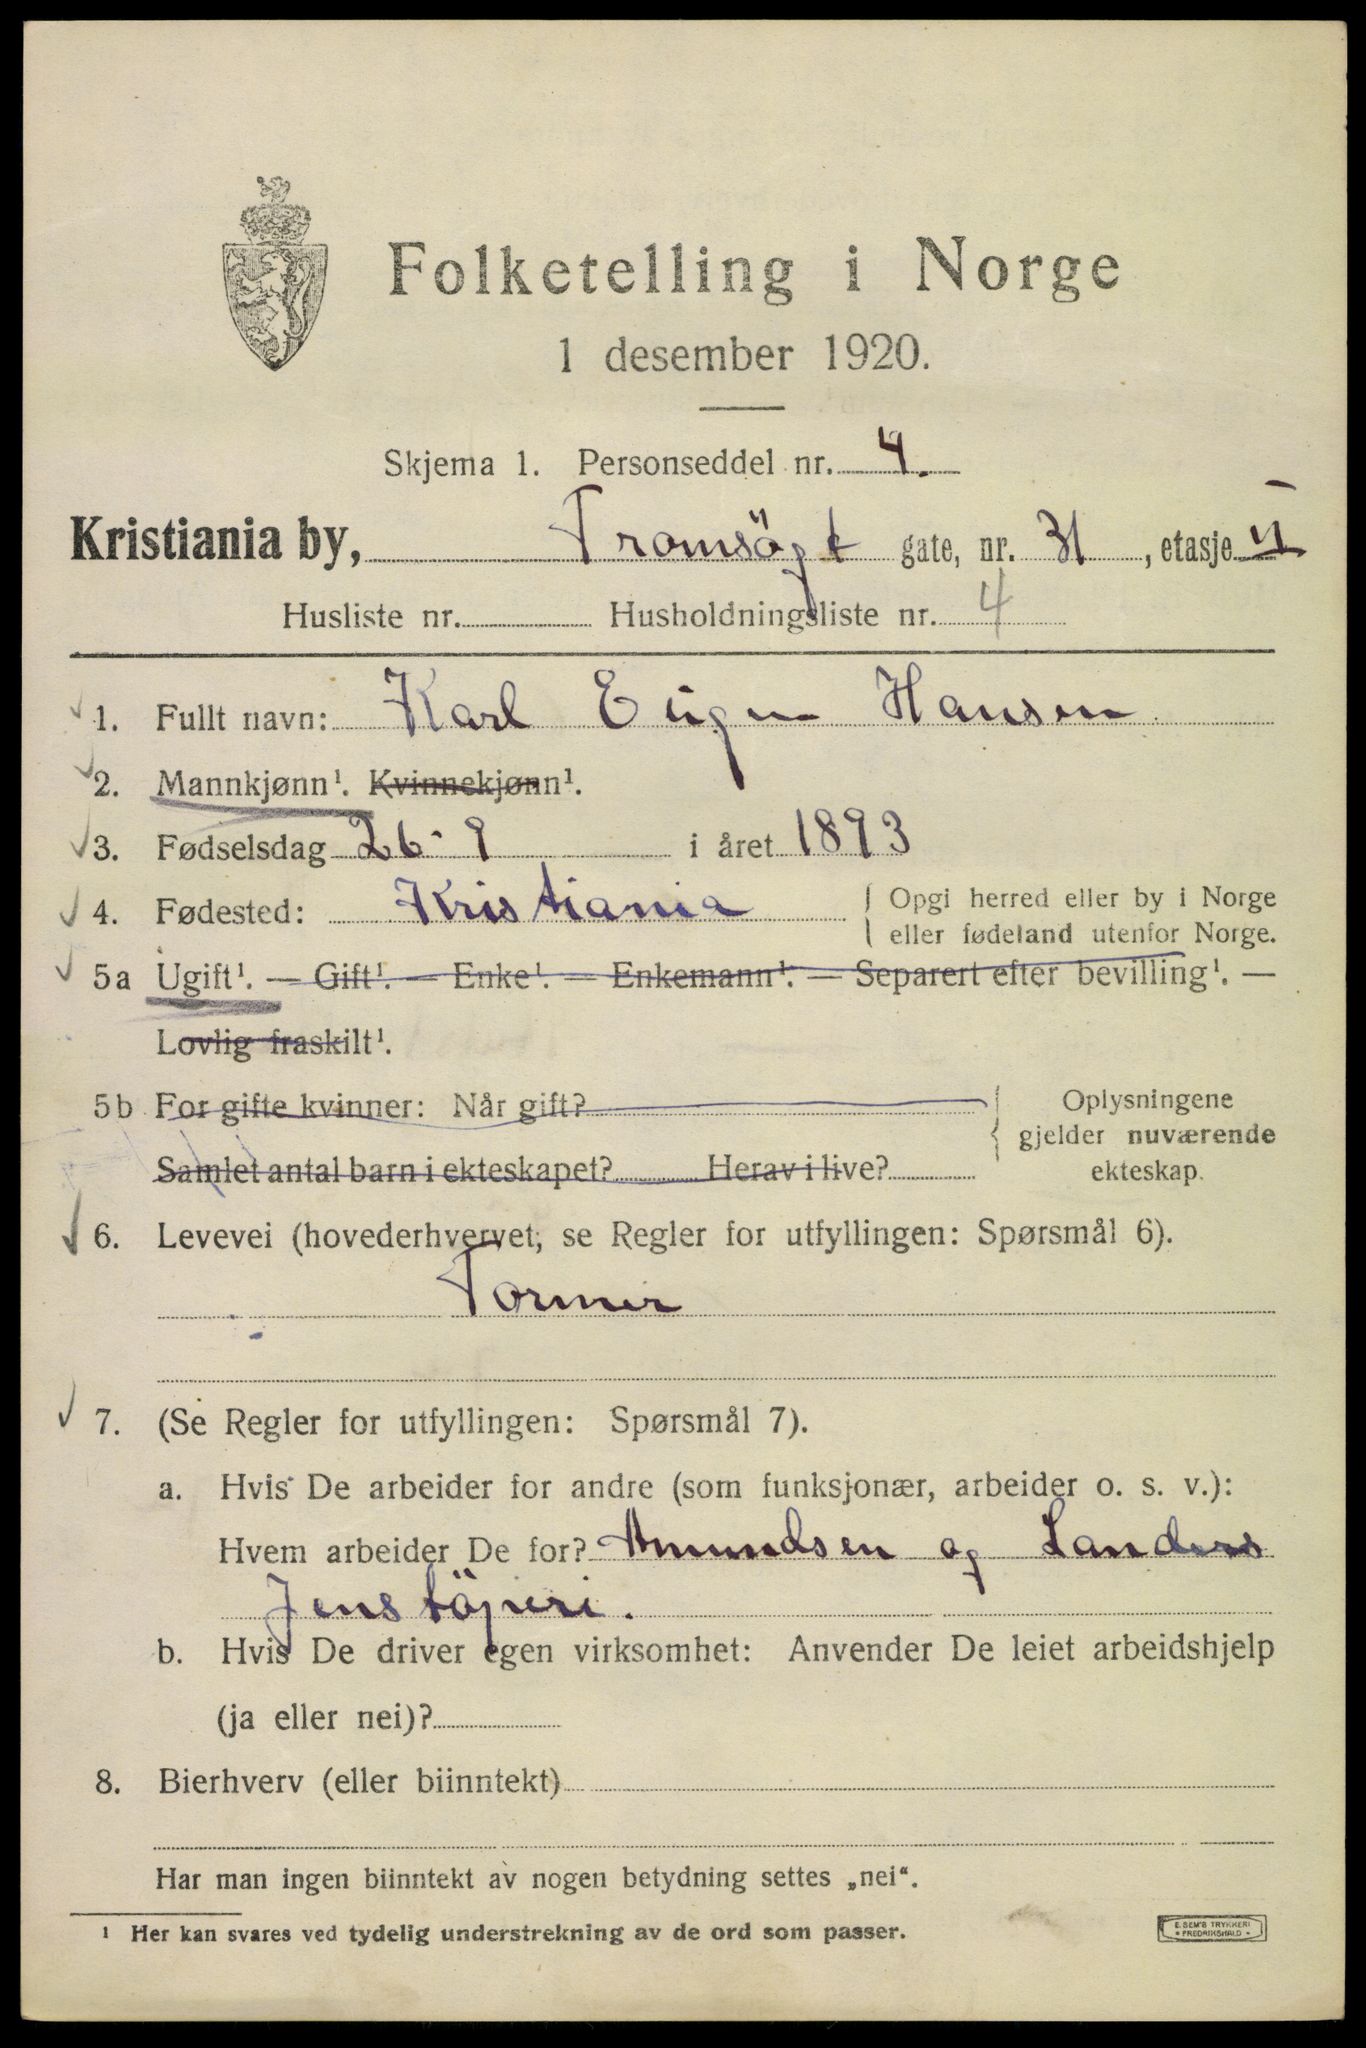 Folketelling i Norge
1 desember 1920.
Skjema 1. Personseddel nr. 4.
Kristiania by, Tromsögt gate, nr. 31, etasje II
Husliste nr. Husholdningsliste nr. 4
1. Fullt navn: Karl Eugen Hansen
2. Mannkjønn¹. Kvinnekjønn¹.
3. Fødselsdag 26-9 i året 1893
4. Fødested: Kristiania { Opgi herred eller by i Norge
eller fødeland utenfor Norge.
5a Ugift¹. — Gift¹. — Enke¹. — Enkemann¹. — Separert efter bevilling¹. —
Lovlig fraskilt¹.
5b For gifte kvinner: Når gift?
Samlet antal barn i ekteskapet? Herav i live?
Oplysningene
gjelder nuværende
ekteskap.
6. Levevei (hovederhvervet, se Regler for utfyllingen: Spørsmål 6).
Former
7. (Se Regler for utfyllingen: Spørsmål 7).
a. Hvis De arbeider for andre (som funksjonær, arbeider o. s. v.):
Hvem arbeider De for? Amundsen og Landers
Jernstöperi.
b. Hvis De driver egen virksomhet: Anvender De leiet arbeidshjelp
(ja eller nei)?
8. Bierhverv (eller biinntekt)
Har man ingen biinntekt av nogen betydning settes „nei“.
¹ Her kan svares ved tydelig understrekning av de ord som passer.
E. SEM'S TRYKKERI
• FREDRIKSHALD •